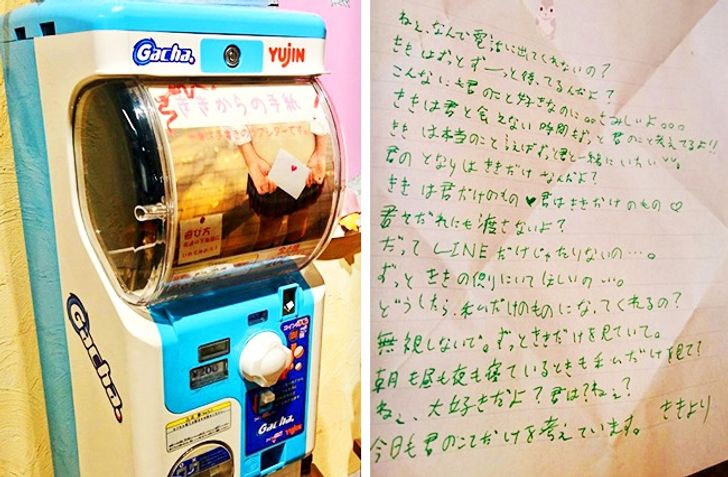 Gacha.
YUJIN
ききからの手紙
遊び方
200
Gacha.
YUJIN
Gacha.
ねぇ、なんで電話に出てくれないの?
ききはずっと待ってるんだよ?
こんなに君のこと好きなのに。。さみしいよ。。。
ききは君と会えない時間もずっと君のこと考えてるよ!!
ききは本当のことえばずっと君と一緒にいたい
君のとなりはききだけなんだよ?
ききは君だけのもの♥君はききだけのもの♡
君をだれにも渡さないよ?
だってLINEだけじゃたりないの…。
ずっとききの側りにいてほしいの…。
どうしたら、私だけのものになってくれるの?
無視しないで。ずっとききだけを見ていて。
朝も昼も夜も寝ているときも私だけを見て!
ねぇ、大好きだよ?君は?ねぇ?
今日も君のことだけを考えています。ききより